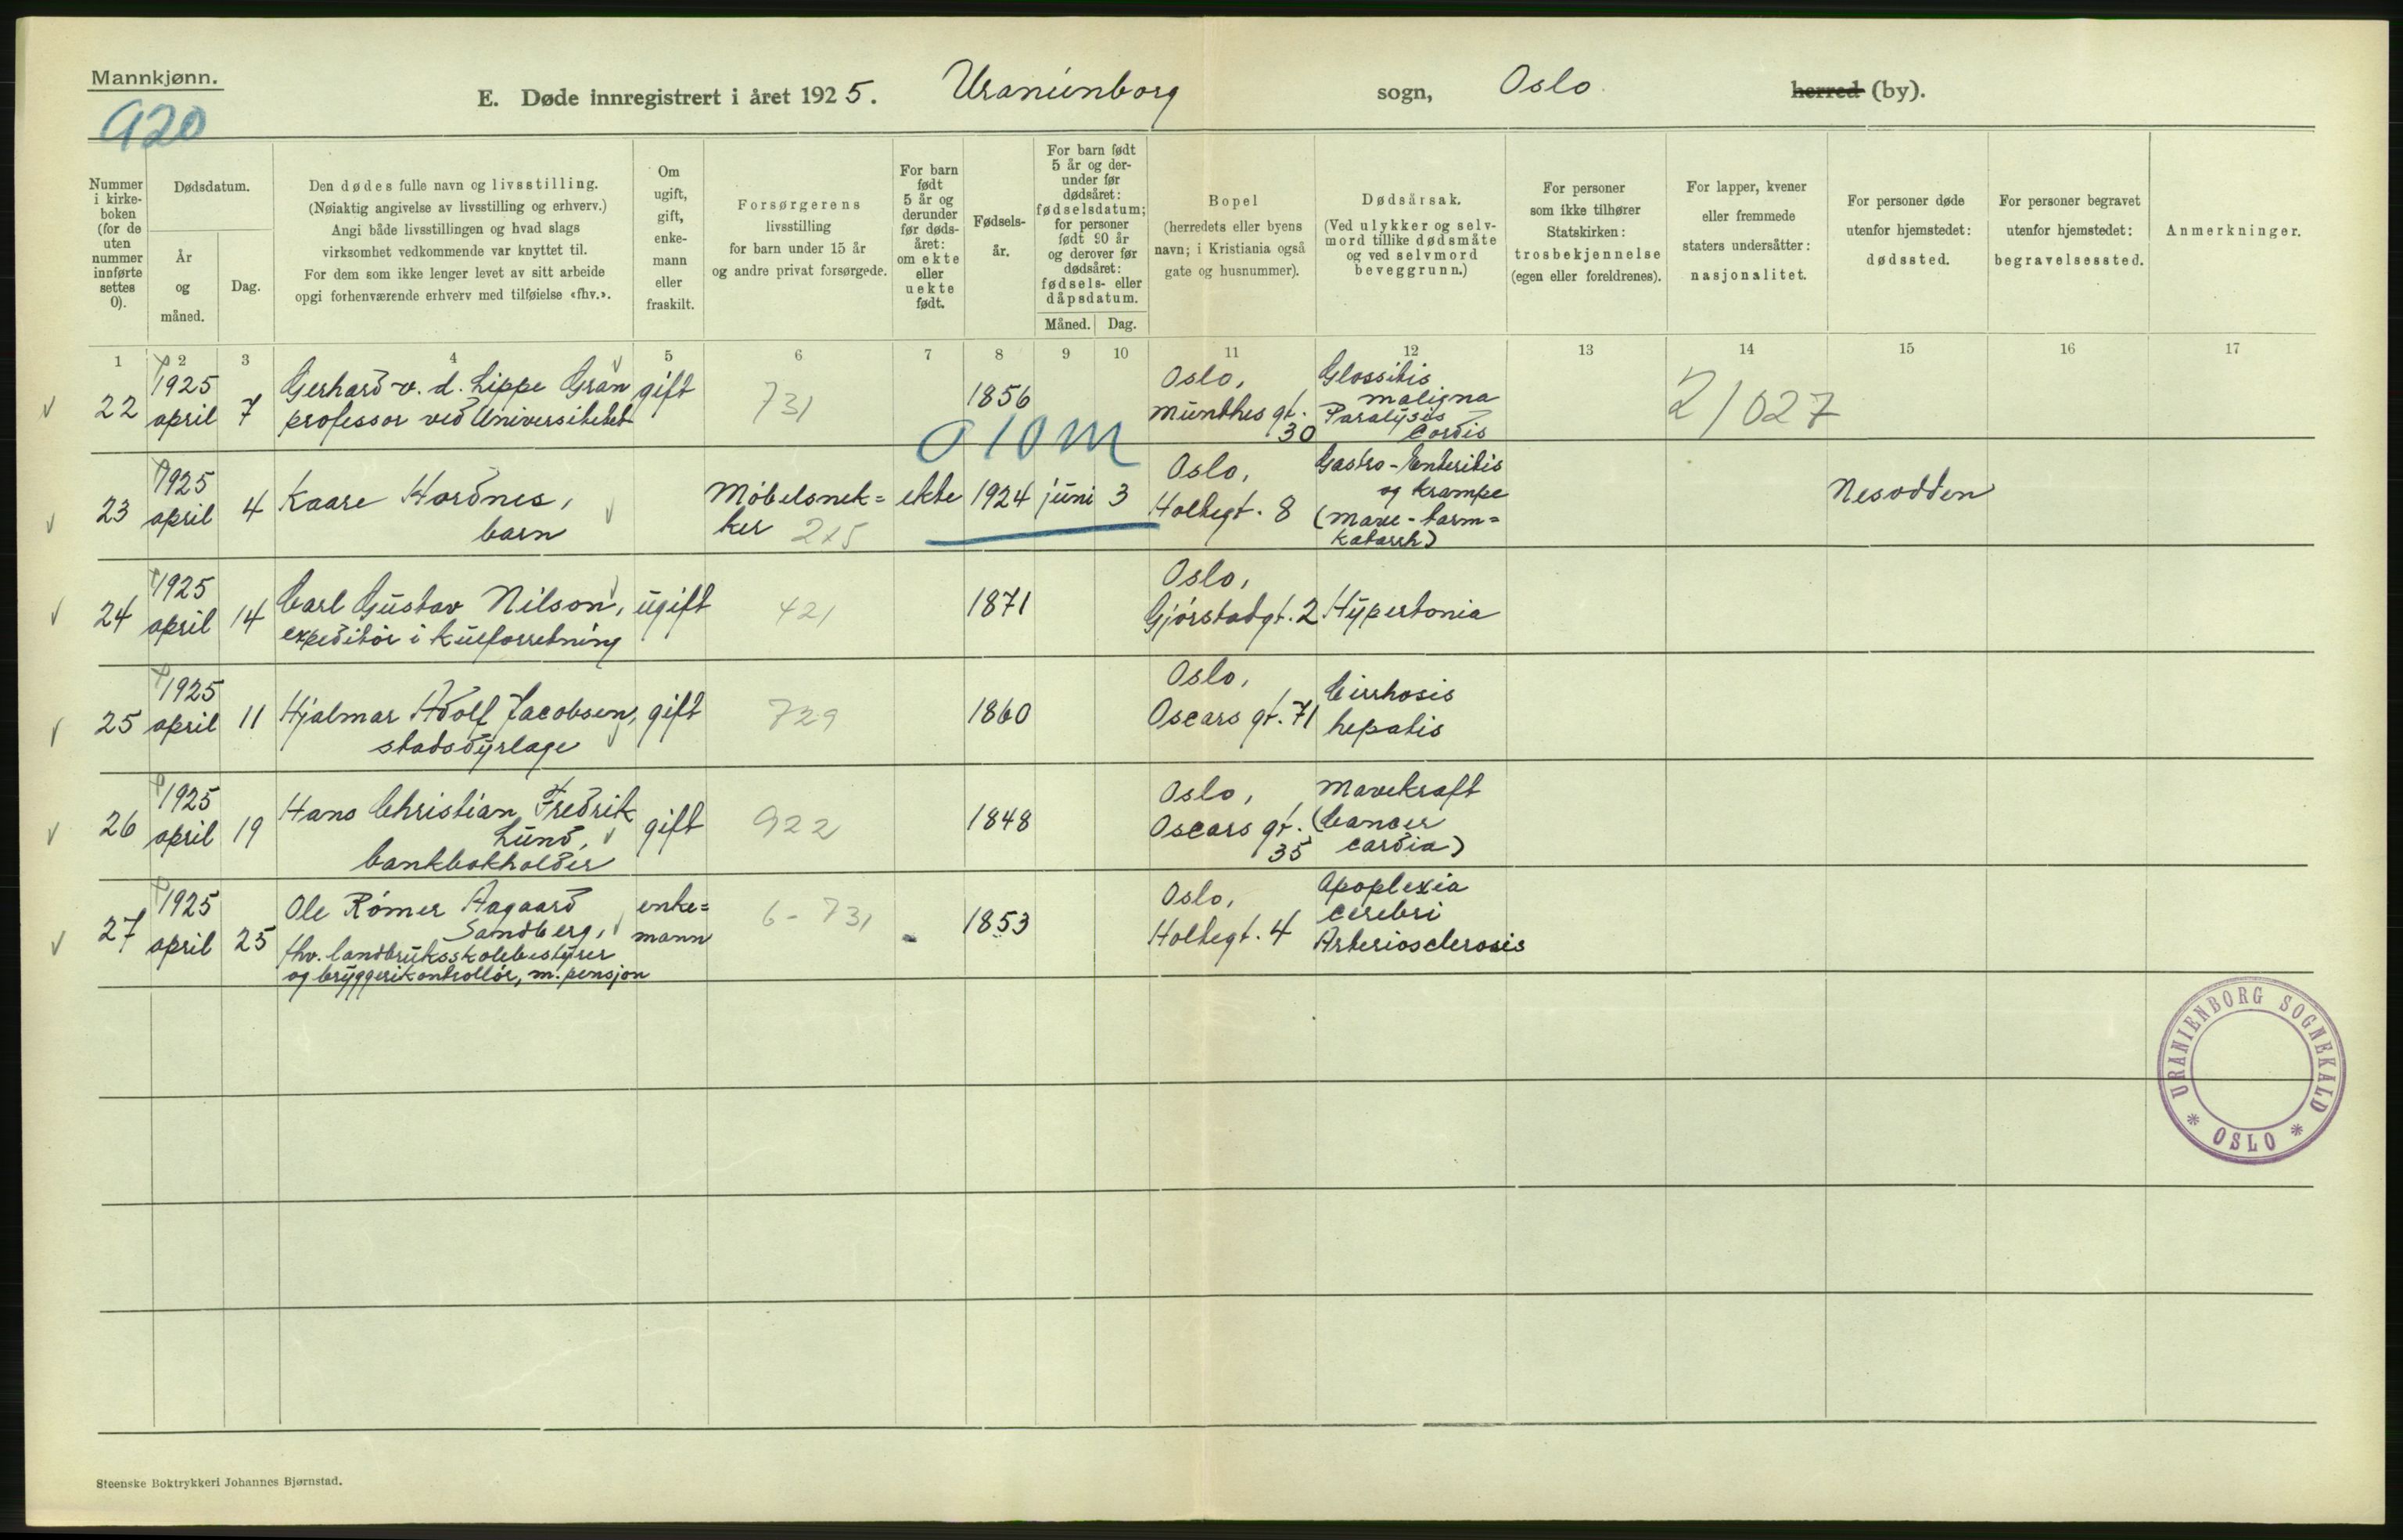 Mannkjønn.
920
E. Døde innregistrert i året 1925. Uranienborg sogn, Oslo herred (by).
Nummer i kirke-boken (for de uten nummer innførte settes 0).
Dødsdatum.
År og måned.
Dag.
Den dødes fulle navn og livsstilling.
(Nøiaktig angivelse av livsstilling og erhverv.)
Angi både livsstillingen og hvad slags
virksomhet vedkommende var knyttet til.
For dem som ikke lenger levet av sitt arbeide
opgi forhenværende erhverv med tilføielse «fhv.».
Om ugift, gift, enke-mann eller fraskilt.
Forsørgerens
livsstilling
for barn under 15 år
og andre privat forsørgede.
For barn født 5 år og derunder før døds-året: om ekte eller uekte født.
Fødsels-år.
For barn født 5 år og der-under før dødsåret: fødselsdatum; for personer født 90 år og derover før dødsåret: fødsels- eller dåpsdatum.
Måned. Dag.
Bopel
(herredets eller byens
navn; i Kristiania også
gate og husnummer).
Dødsårsak.
(Ved ulykker og selv-
mord tillike dødsmåte
og ved selvmord
beveggrunn.)
For personer
som ikke tilhører
Statskirken:
trosbekjennelse
(egen eller foreldrenes).
For lapper, kvener
eller fremmede
staters undersåtter:
nasjonalitet.
For personer døde
utenfor hjemstedet:
dødssted.
For personer begravet
utenfor hjemstedet:
begravelsessted.
Anmerkninger.
1 2 3 4 5 6 7 8 9 10 11 12 13 14 15 16 17
22 1925 april 7 Gerhard v. d. Lippe Gran gift 731 1856 Oslo, Munthes gt. 30 Glossitis maligna Paralysis cordis 21027
professor ved Universitetet
010m
23 1925 april 4 Kaare Hordnes, Møbelsnek=ker 2x5 ekte 1924 juni 3 Oslo, Holtegt. 8 Gastro-Enteritis og krampe (mave-tarm=katarrh) Nesodden
barn
24 1925 april 14 Carl Gustav Nilson, ugift 421 1871 Oslo, Gjørstadgt. 2 Hypertonia
expeditør i kulforretning
25 1925 april 11 Hjalmar Adolf Jacobsen, gift 729 1860 Oslo, Oscars gt. 71 Cirrhosis hepatis
stadsdyrlæge
26 1925 april 19 Hans Christian Fredrik gift 922 1848 Oslo, Oscars gt. 35 Mavekræft (Cancer cardia)
Lund,
bankbokholder
27 1925 april 25 Ole Rømer Aagaard enke=mann 6-731 1853 Oslo, Holtegt. 4 Apoplexia cerebri Arteriosclerosis
Sandberg,
fhv. landbruksskolebestyrer
og bryggerikontrollør, m. pensjon
URANIENBORG SOGNEKALD * OSLO *
Steenske Boktrykkeri Johannes Bjørnstad.